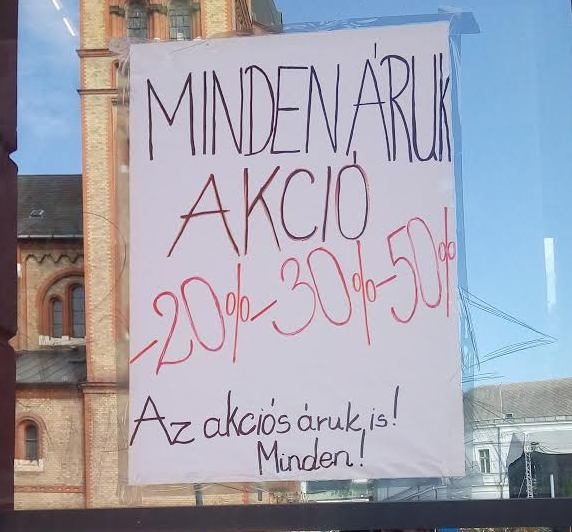 MINDEN ÁRUK
AKCIÓ
-20%-30%-50%
Az akciós áruk is!
Minden!